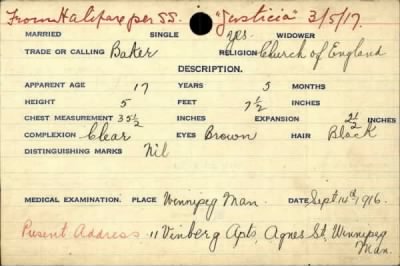 From Halifax per SS. "Justicia" 3/5/17.
MARRIED SINGLE yes. WIDOWER
TRADE OR CALLING Baker RELIGION Church of England
DESCRIPTION.
APPARENT AGE 17 YEARS 5 MONTHS
HEIGHT 5 FEET 7 1/2 INCHES
CHEST MEASUREMENT 35 1/2 INCHES EXPANSION 2 1/2 INCHES
COMPLEXION Clear EYES Brown HAIR Black
DISTINGUISHING MARKS Nil
MEDICAL EXAMINATION. PLACE Winnipeg Man. DATE Sept 14th 1916.
Present Address 11 Vinberg Apts, Agnes St, Winnipeg
Man.